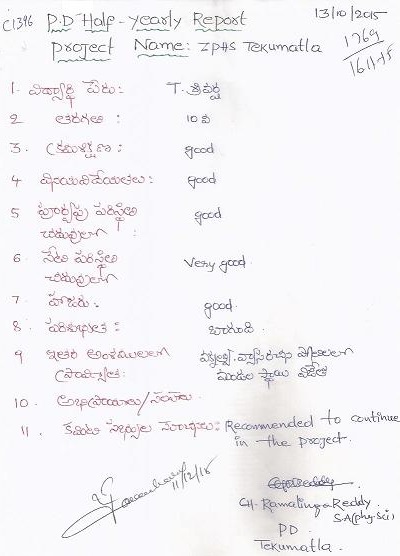 C1396 P.D Half-yearly Report 13/10/2015
Project Name: ZPHS Tekumatla
1769
16/11/15
1. విద్యార్థి పేరు: T. శ్రీవర్ష
2 తరగతి : 10 వ
3. క్రమశిక్షణ: good
4 వినయవిధేయతలు: good
5 పూర్వపు పరిస్థితి good
చదువులలో :
6 నేటి పరిస్థితి Very good.
చదువులలో
7 హాజరు: good.
8. పరిశుభ్రత: బాగుంది.
9 ఇతర అంశములలో వక్తృత్వ, వ్యాసరచన పోటీలలో
ప్రావీణ్యత: మండల స్థాయి విజేత
10. అభిప్రాయాలు/సలహాలు
11. కమిటి సభ్యుల సూచనలు: Recommended to continue
in the project.
11/12/15
CH. Ramalinga Reddy
SA(phy.sci)
PD
Tekumatla.